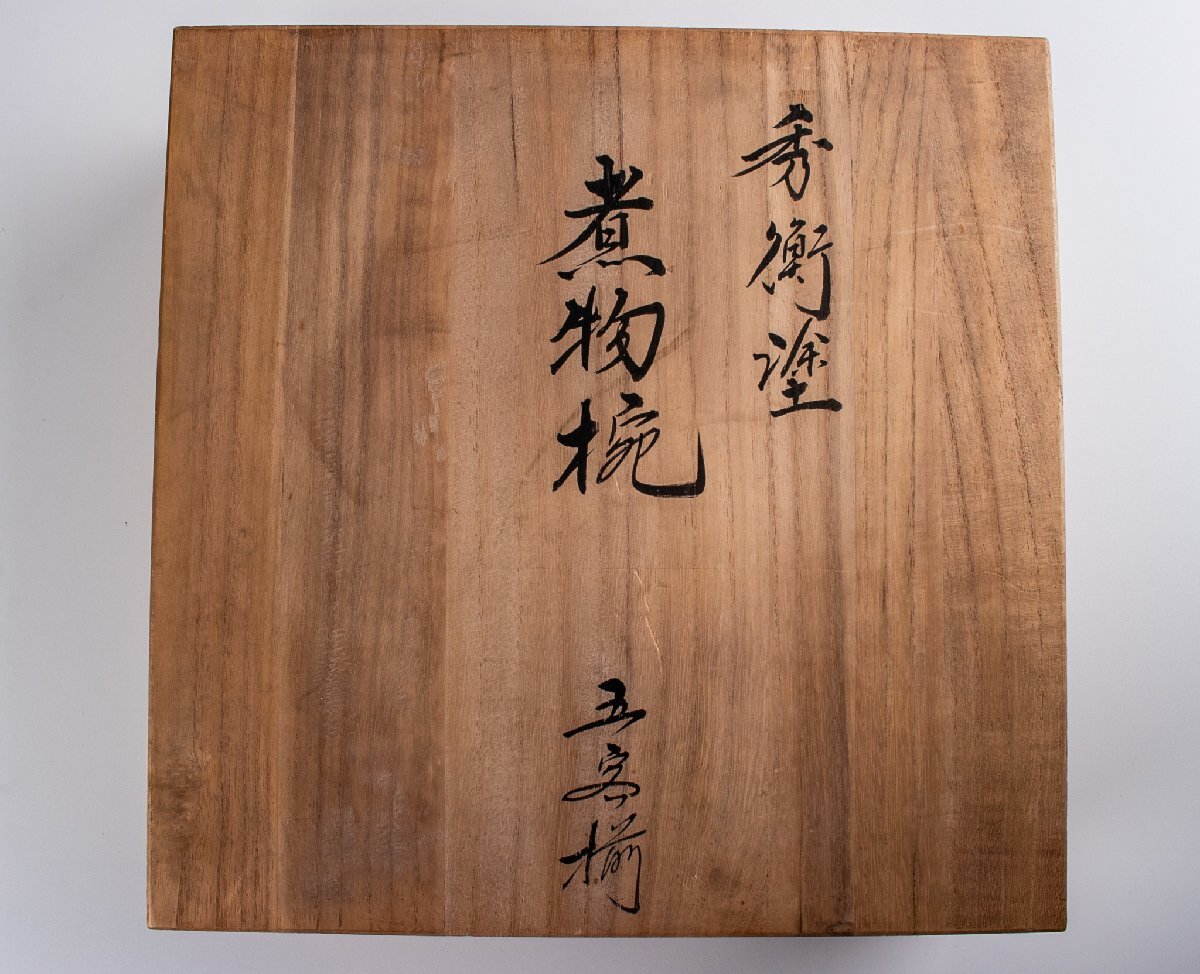 秀衡塗
煮物椀
五客揃